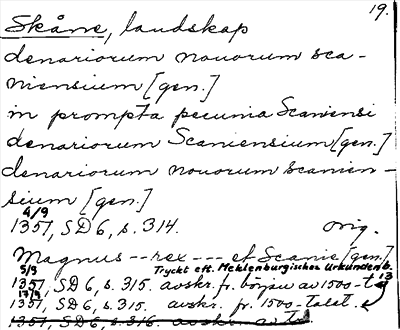 19.
Skåne, landskap
denariorum nouorum sca-
niensium [gen.]
in prompta pecunia Scaniensi
denariorum Scaniensium [gen.]
denariorum nouorum scanien-
sium [gen.]
4/9
1351, SD 6, s. 314. orig.
Magnus -- rex --- et Scanie [gen.]
5/3 Tryckt eft. Meklenburgisches Urkundenb. 13
1351, SD 6, s. 315. avskr. fr. början av 1500-t
17/9
1351, SD 6, s. 315. avskr. fr. 1500-talet.
1351, SD 6, s. 316. avskr. av